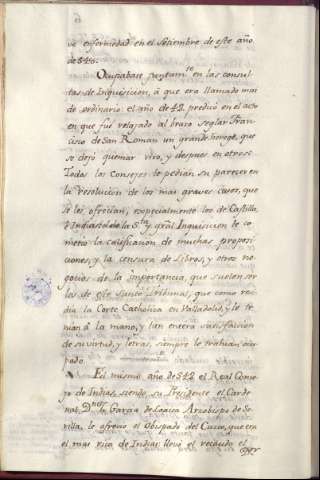 ve enfermedad en el Setiembre de este año
de 540.
Ocupabase juntam.te en las consul
tas de Inquisicion, à que era llamado mas
de ordinario: el año de 42. predicò en el acto
en que fue relajado al brazo seglar Fran
cisco de San Roman un grande herege, que
se dejò quemar vivo, y despues en otros.
Todos los Consejos le pedian su parecer en
la resolucion de los mas graves casos, que
se les ofrecian, especialmente los de Castilla,
è Indias: la S.ta y gral Inquisicion le co
metio la calificacion de muchas proposi
ciones, y la censura de Libros, y otros ne
gocios de la importancia, que suelen ser
los de este Santo Tribunal, que como resi
dia la Corte Catholica en Valladolid, y le te
nian à la mano, y tan entera satisfaccion
de su virtud, y letras, siempre le trahian ocu
pado.
El mismo año de 542 el Real Conse
jo de Indias, siendo su Presidente el Carde
nal D.n Garcia de Loaisa Arzobispo de Se
villa, le ofreciò el Obispado del Cuzco, que era
el mas rico de Indias: llevò el recaudo el